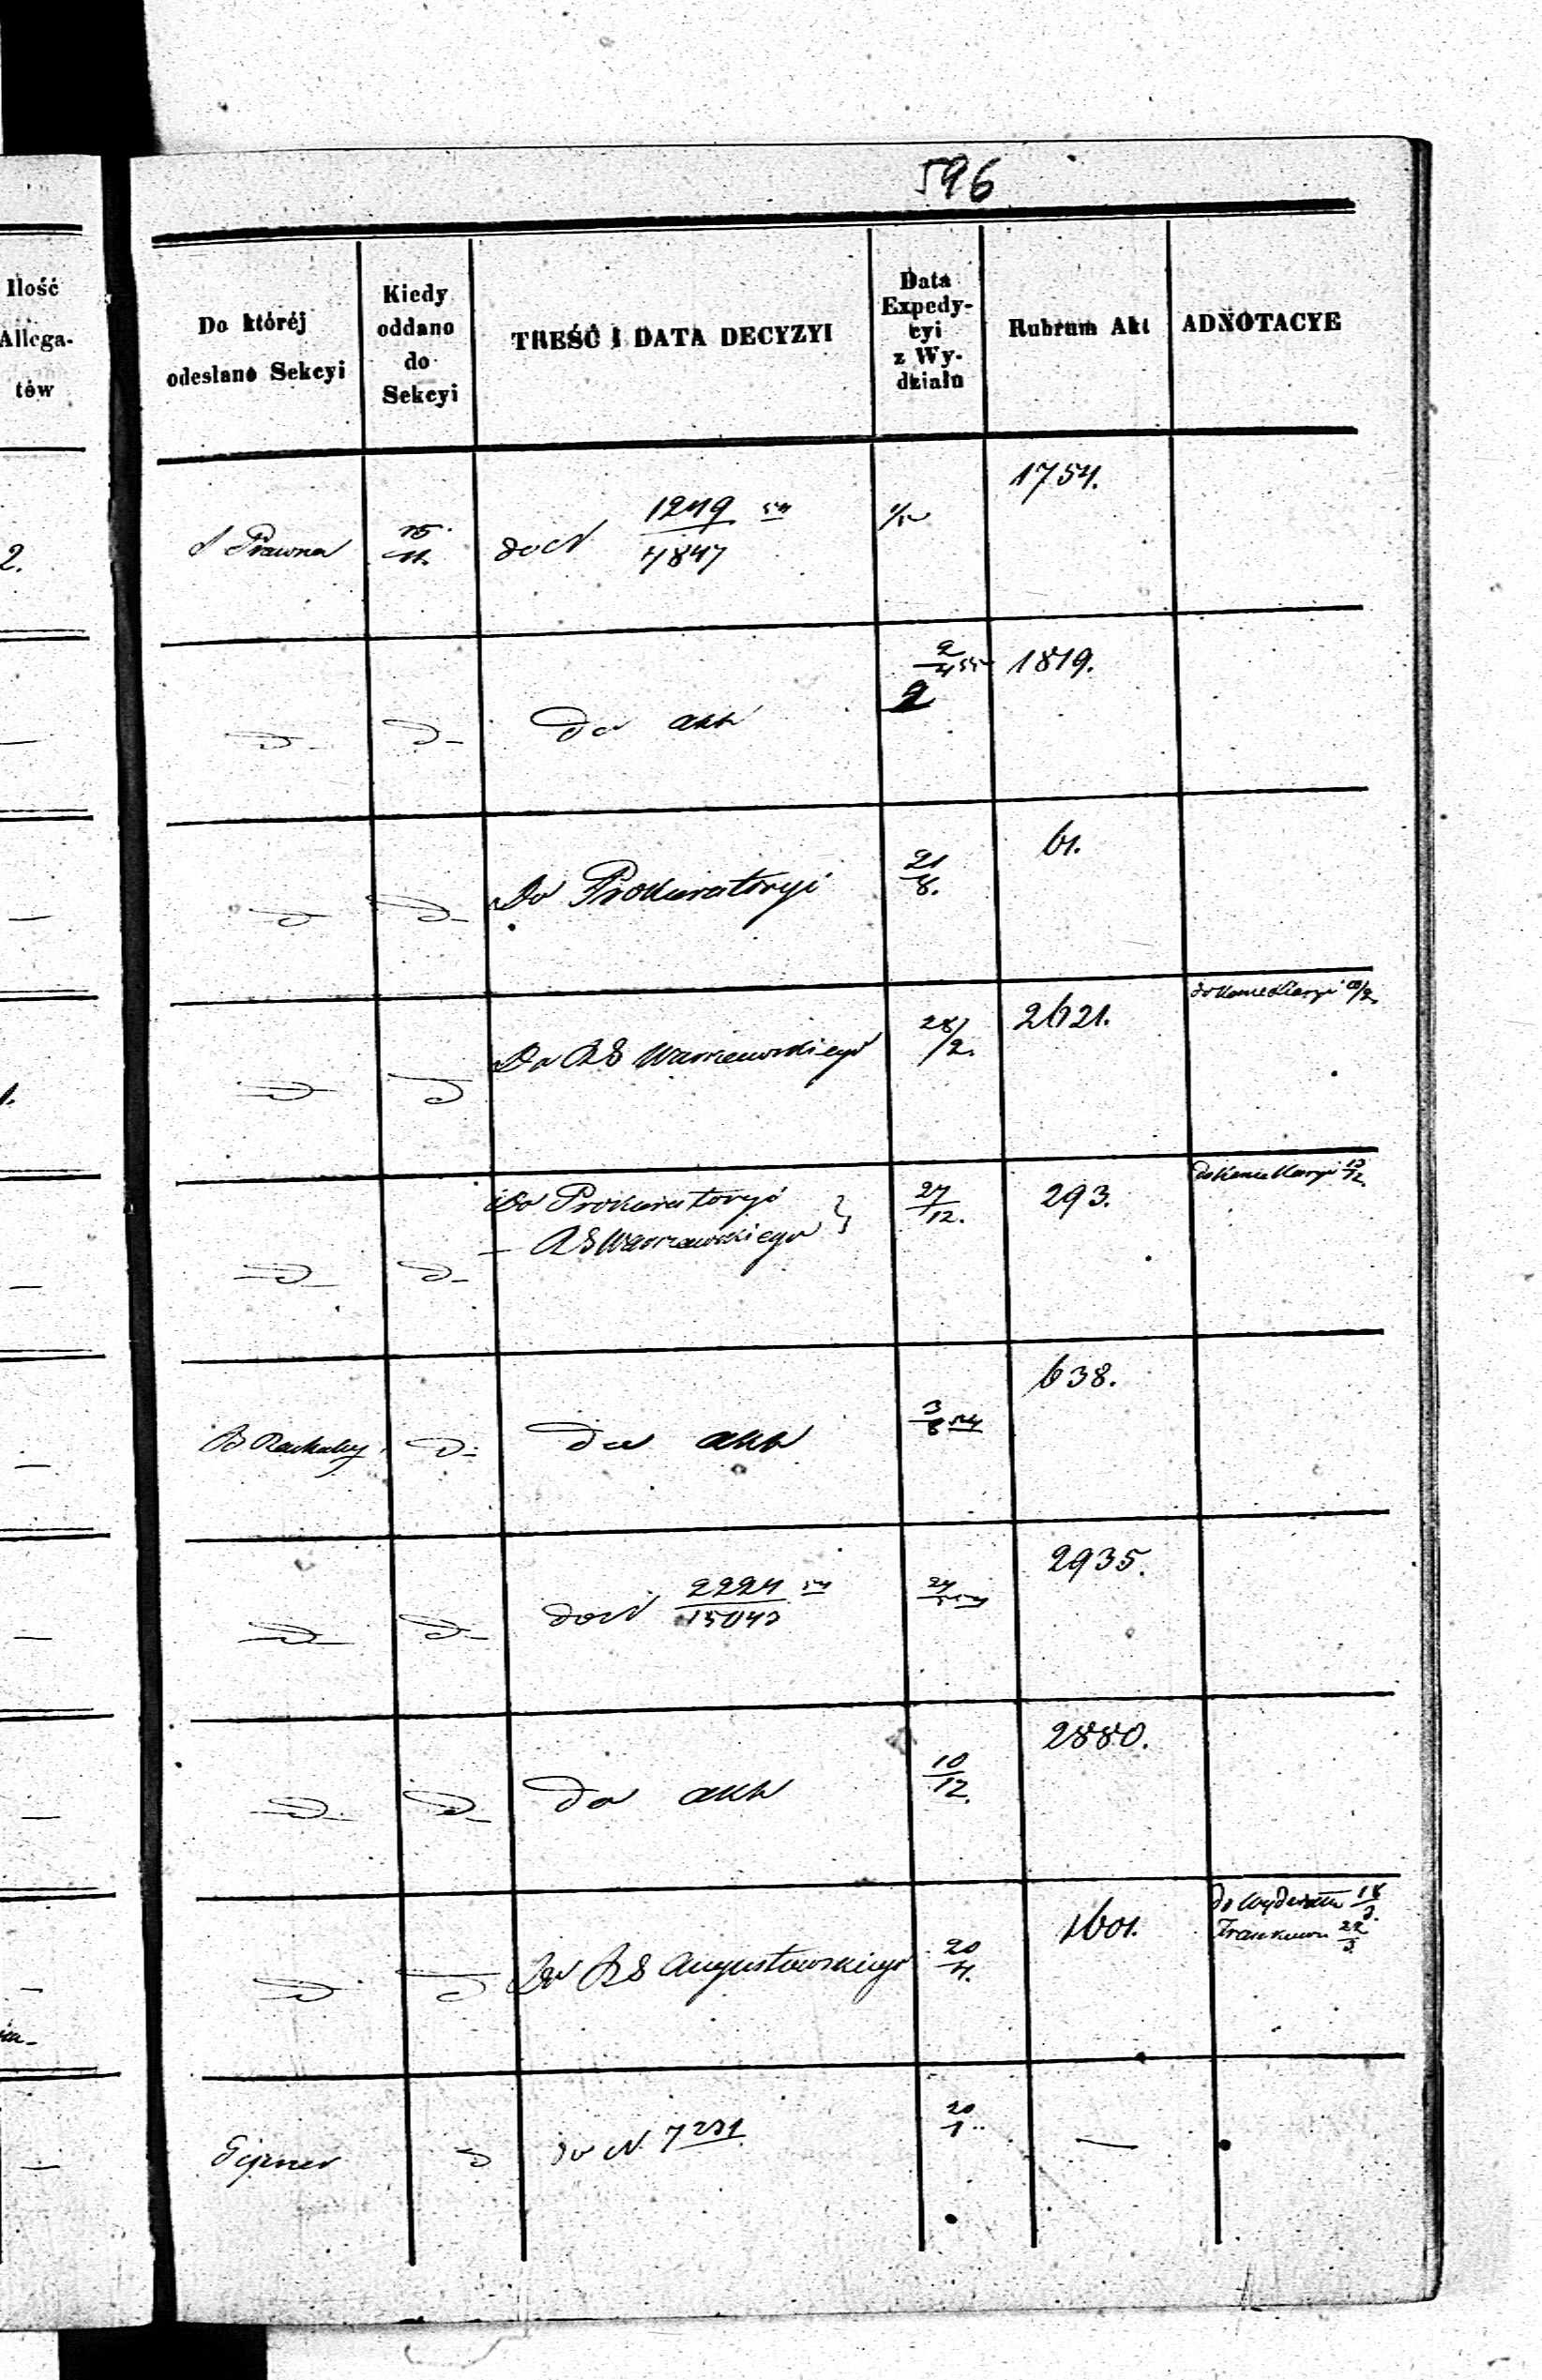 596
Ilość
Allega-
tów
Do któréj
odesłano Sekcyi
Kiedy
oddano
do
Sekcyi
TREŚĆ I DATA DECYZYI
Data
Expedy-
cyi
z Wy-
działu
Rubrum Akt
ADNOTACYE
2.
Prawna
15
11.
do N 1249 54
4847
1754.
do akt
2
4 55
2
1819.
Do Prokuratoryi
21
8.
61.
1.
Do RG Warszawskiego
28/2.
2621.
do Kancellaryi
Do Prokuratoryi
— RG Warszawskiego }
27
12.
293.
do Kancellaryi 13
12
do akt
3
8 54
638.
do N 2224 54
2935.
do akt
10
12.
2880.
Do RG Augustowskiego
20
4.
1601.
do Wydziału 18
3.
22
3
do N. 7231
20
1
—